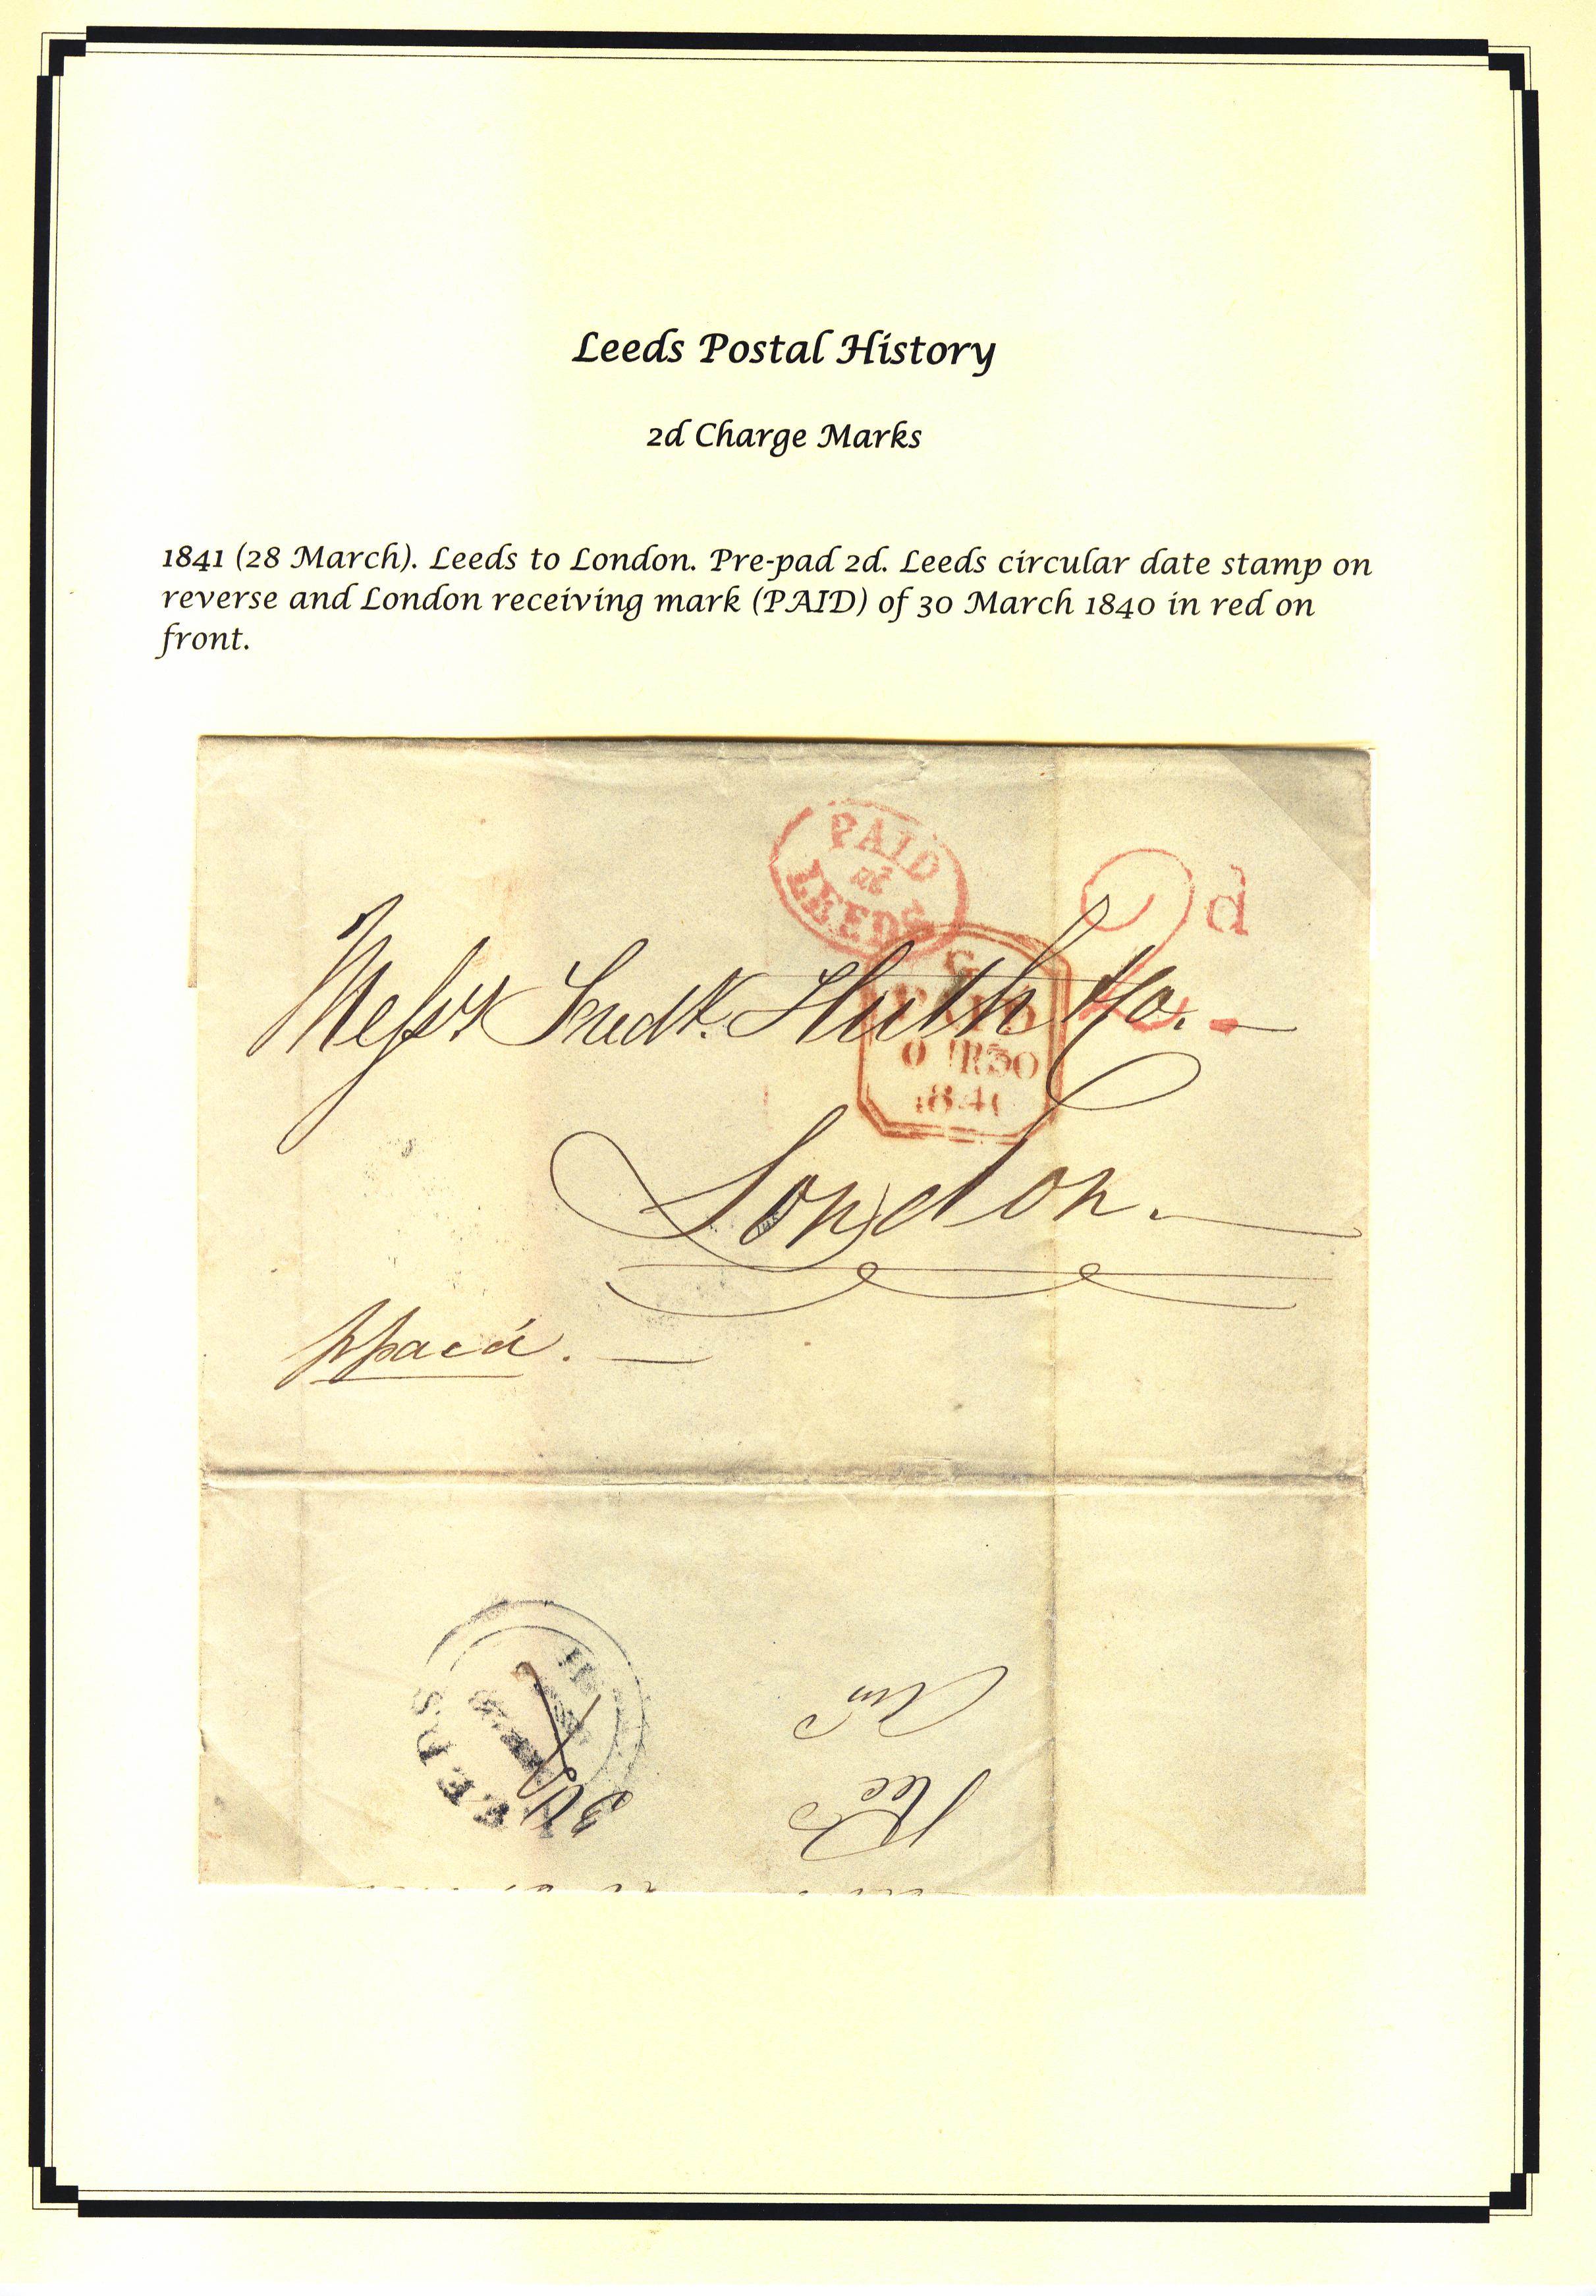 Leeds Postal History
2d Charge Marks
1841 (28 March). Leeds to London. Pre-pad 2d. Leeds circular date stamp on
reverse and London receiving mark (PAID) of 30 March 1840 in red on
front.
PAID
at
LEEDS
2d
G
PAID
30
1841
Messrs Fredk. Huth & Co.
London.
ppaid.
LEEDS